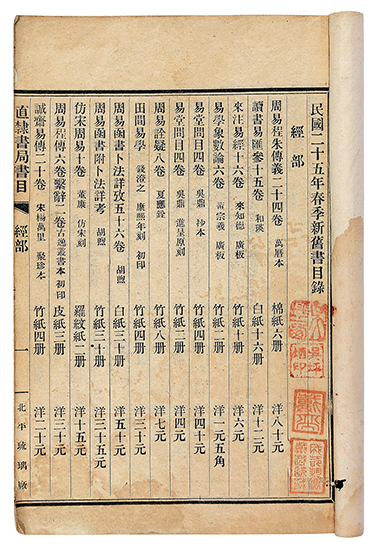 民國二十五年春季新舊書目錄
經部
周易程朱傳義二十四卷 萬曆本 棉紙六册 洋八十元
讀書易匯參十五卷 和瑛 白紙十六册 洋十二元
來注易經十六卷 來知德 廣板 竹紙十册 洋六元
易學象數論六卷 黃宗羲 廣板 竹紙二册 洋一元五角
易堂問目四卷 吳鼎 抄本 竹紙四册 洋四十元
易堂問目四卷 吳鼎 進呈原刻 竹紙二册 洋四元
周易詮疑八卷 夏應銓 竹紙八册 洋七元
田間易學 錢澄之 康熙年刻 初印 竹紙四册 洋三十元
周易函書卜法詳攷五十六卷 胡煦 白紙二十册 洋五十元
周易函書附卜法詳考 胡煦 竹紙三十册 洋三十五元
仿宋周易 董康 仿宋刻 羅紋紙二册 洋十五元
周易程傳六卷繫辭二卷 古逸叢書本 初印 皮紙三册 洋三十元
誠齋易傳二十卷 宋楊萬里 聚珍本 竹紙四册 洋二十元
直隸書局書目 經部 一 北平琉璃廠